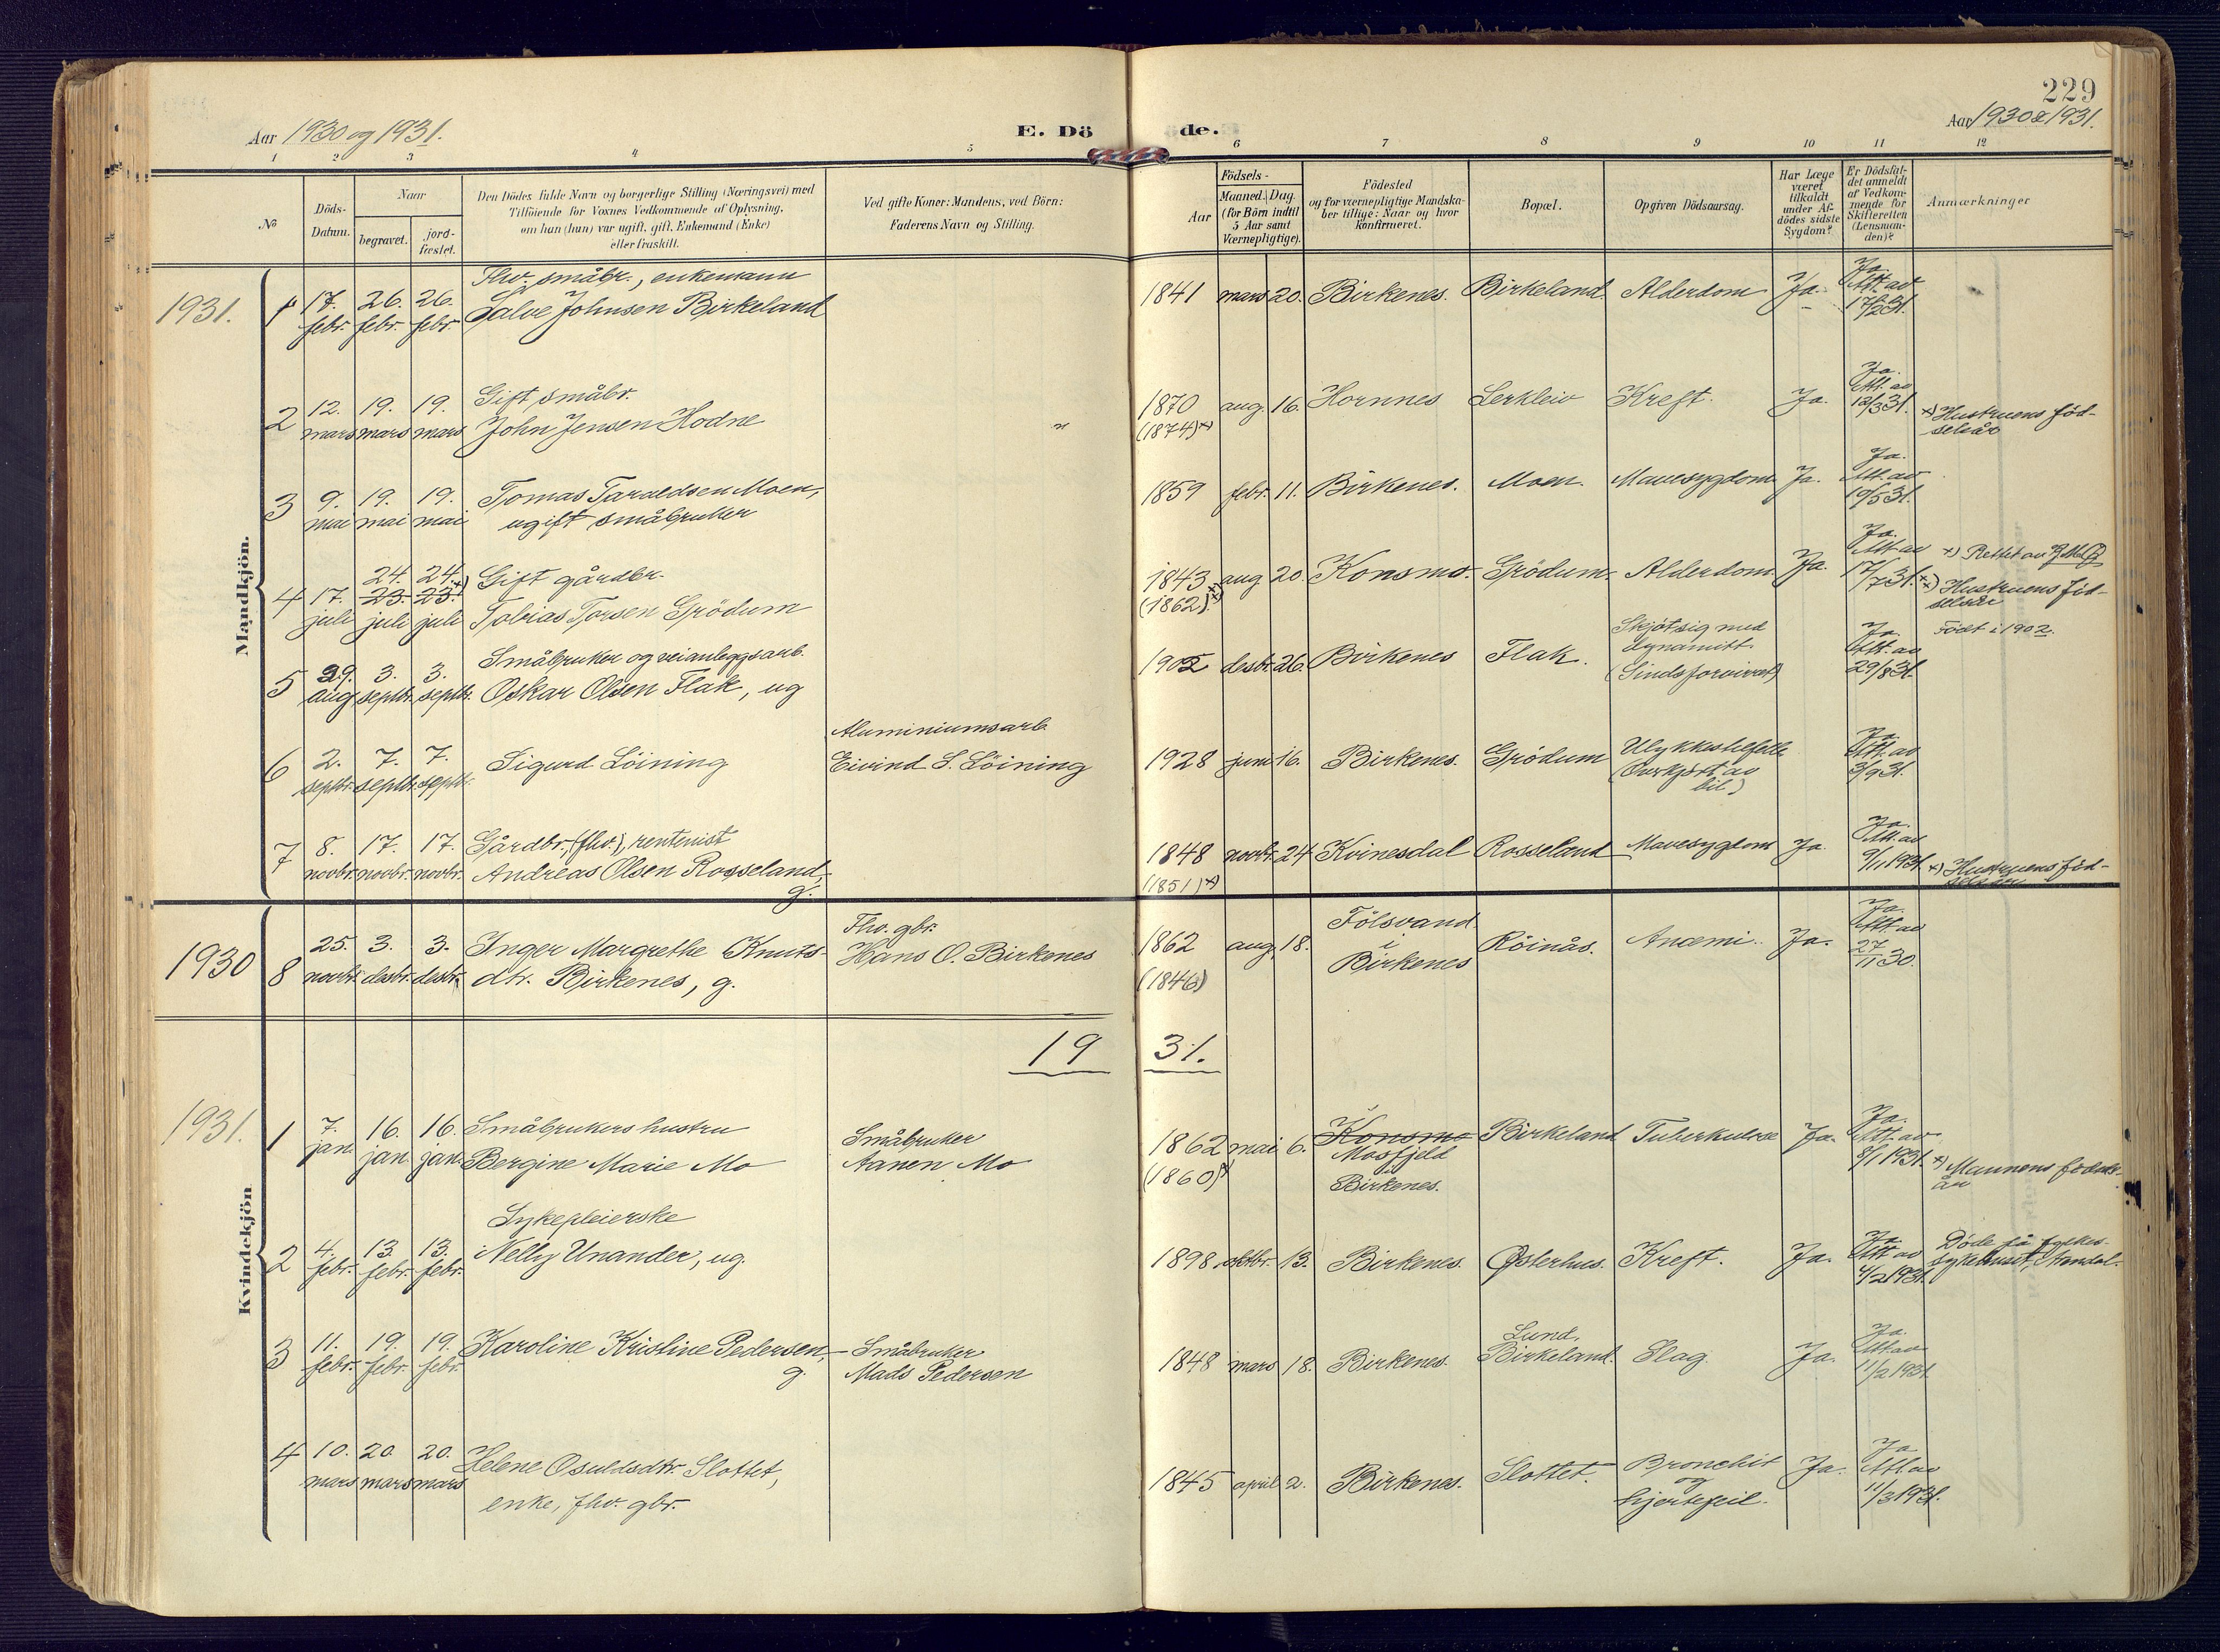 229
Aar 1930 og 1931.
E. Dö
de.
Aar 1930 & 1931.
1 2 3 4 5 6 7 8 9 10 11 12
No
Döds-
Datum.
Naar
begravet.
jord-
fæstet.
Den Dödes fulde Navn og borgerlige Stilling (Næringsvei) med
Tilföiende for Voxnes Vedkommende af Oplysning,
om han (hun) var ugift, gift, Enkemand (Enke)
eller fraskilt.
Ved gifte Koner: Mandens, ved Börn:
Faderens Navn og Stilling.
Födsels-
Aar
Maaned. Dag.
(for Börn indtil
5 Aar samt
Værnepligtige).
Födested
og for værnepligtige Mandska-
ber tillige: Naar og hvor
konfirmeret.
Bopæl.
Opgiven Dödsaarsag.
Har Læge
været
tilkaldt
under Af-
dödes sidste
Sygdom?
Er Dödsfal-
det anmeldt
af Vedkom-
mende for
Skifteretten
(Lensman-
den)?
Anmærkninger
Mandkjön.
1931.
1 17. febr. 26. febr. 26. febr.
Fhv. småbr., enkemann
Salve Johnsen Birkeland
1841 mars 20. Birkenes. Birkeland. Alderdom Ja.
Ja.
Att. av
17/2 31.
2 12. mars 19. mars 19. mars
Gift småbr.
John Jensen Hodne "
1870 aug. 16. Hornnes Lerkleiv Kreft. Ja.
(1874) x)
Ja.
Att. av
12/3 31.
x) Hustruens föd-
selsår
3 9. mai 19. mai 19. mai
Tomas Taraldsen Moen,
ugift småbruker
1859 febr. 11. Birkenes. Moen. Mavesygdom Ja.
Ja.
Att. av
19/5 31.
4 17. juli 24. 23. juli 24. 23. juli x)
Gift gårdbr.
Tobias Torsen Grödum
1843 aug 20. Konsmo. Grödum. Alderdom. Ja.
(1862) xx)
Ja.
Att. av
17/7 31.
x) Rettet av
xx) Hustruens föd-
selsår
5 29. aug. 3. septbr. 3. septbr.
Småbruker og veianleggsarb.
Oskar Olsen Flak, ug
1902 desbr. 26. Birkenes Flak.
Skjöt sig med
dynamitt.
(Sindsforvirret)
Ja.
Att. av
29/8 31.
Födt i 1902.
6 2. septbr. 7. septbr. 7. septbr.
Sigurd Löining
Aluminiumsarb.
Eivind S. Löining
1928 juni 16. Birkenes. Grödum
Ulykkestilfelle
(Overkjört av
bil)
Ja.
Att. av
3/9 31.
7 8. novbr. 17. novbr. 17. novbr.
Gårdbr. (fhv.), rentenist
Andreas Olsen Rosseland,
g.
1848 novbr. 24 Kvinesdal Rosseland Mavesygdom Ja.
(1851) x)
Ja.
Att. av
9/11 1931.
x) Hustruens föd-
selsår
1930
8 25. novbr. 3. desbr. 3. desbr.
Inger Margrethe Knuts-
dtr. Birkenes, g.
Fhv. gbr.
Hans O. Birkenes
1862 aug. 18.
(1846)
Fölsvand
i
Birkenes
Röinås. Anæmi. Ja.
Ja.
Att. av
27/11 30.
19 31.
Kvindekjön
1931.
1 7. jan. 16. jan. 16. jan.
Småbrukers hustru
Bergine Marie Mo
Småbruker
Aanen Mo
1862 mai 6.
(1860) x)
Konsmo
Mosfjeld
i
Birkenes.
Birkeland Tuberkulose Ja.
Ja.
Att. av
8/1 1931.
x) Mannens födsels-
år
2 4. febr. 13. febr. 13. febr.
Sykepleierske
Nelly Unander, ug.
1898 oktbr. 13. Birkenes. Østerhus. Kreft. Ja.
Ja
Att av
4/2 1931.
Döde på fylkes-
sykehuset, Arendal.
3 11. febr. 19. febr. 19. febr.
Karoline Kristine Pedersen,
g.
Småbruker
Mads Pedersen
1848 mars 18. Birkenes.
Lund.
Birkeland. Slag. Ja.
Ja.
Att. av
11/2 1931.
4 10. mars 20. mars 20. mars
Helene Osuldsdtr. Slottet,
enke, fhv. gbr.
1845 april 2. Birkenes. Slottet.
Bronchit
og
hjertefeil.
Ja.
Ja
Att. av
11/3 1931.